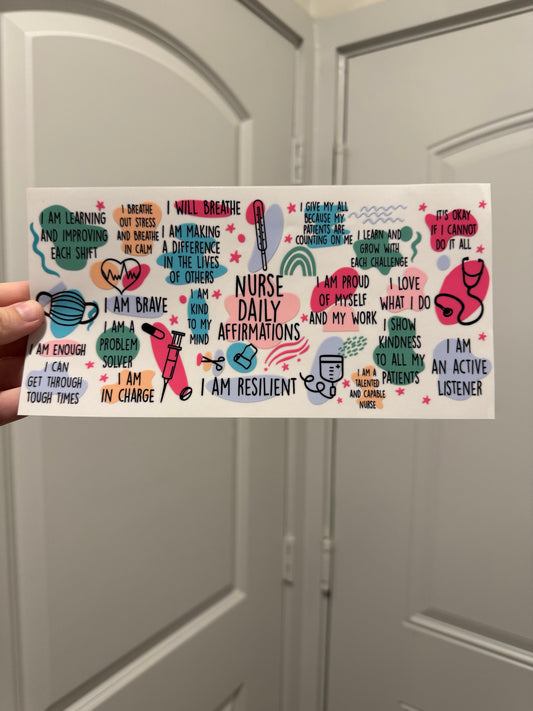 I AM LEARNING
AND IMPROVING
EACH SHIFT
I BREATHE
OUT STRESS
AND BREATHE
IN CALM
I WILL BREATHE
I AM MAKING
A DIFFERENCE
IN THE LIVES
OF OTHERS
I GIVE MY ALL
BECAUSE MY
PATIENTS ARE
COUNTING ON ME
I LEARN AND
GROW WITH
EACH CHALLENGE
IT'S OKAY
IF I CANNOT
DO IT ALL
I AM BRAVE
I AM
KIND
TO MY
MIND
NURSE
DAILY
AFFIRMATIONS
I AM PROUD
OF MYSELF
AND MY WORK
I LOVE
WHAT I DO
I AM ENOUGH
I AM A
PROBLEM
SOLVER
I CAN
GET THROUGH
TOUGH TIMES
I AM
IN CHARGE
I AM RESILIENT
I AM A
TALENTED
AND CAPABLE
NURSE
I SHOW
KINDNESS
TO ALL MY
PATIENTS
I AM
AN ACTIVE
LISTENER